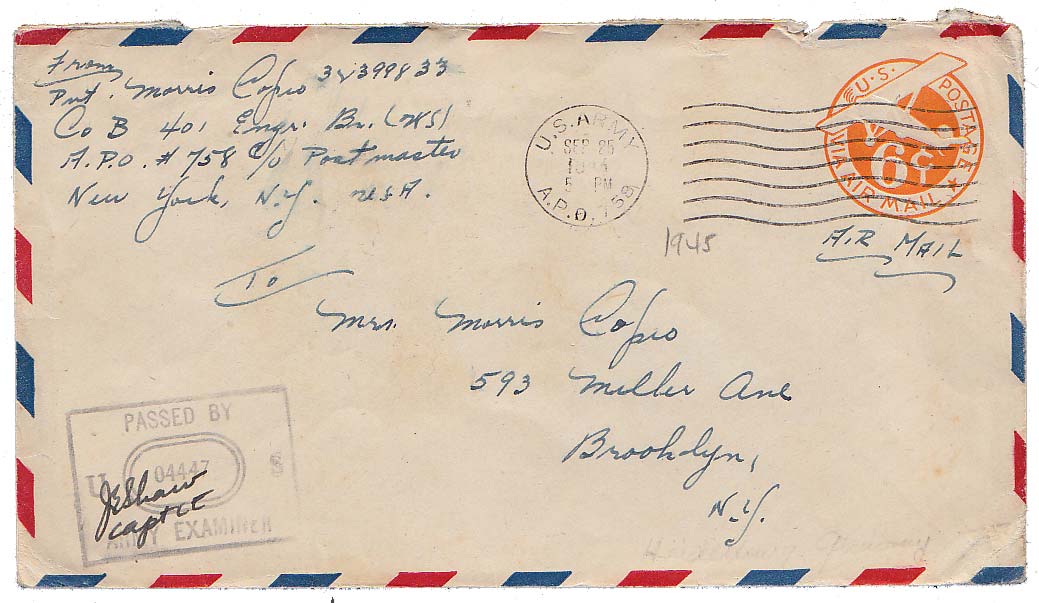 From
Pvt. Morris Copio
Co B 401 Engr. Bn. (WS)
A.P.O. # 758 c/o Postmaster
New York, N.Y. USA.
U.S. ARMY
SEP 25
PM
A.P.O. 758
U.S. POSTAGE
6¢
VIA AIR MAIL
1945
AIR MAIL
To
Mrs. Morris Copio
593 Miller Ave
Brooklyn,
N.Y.
PASSED BY
U 04447 S
JEShaw
Capt CE
ARMY EXAMINER